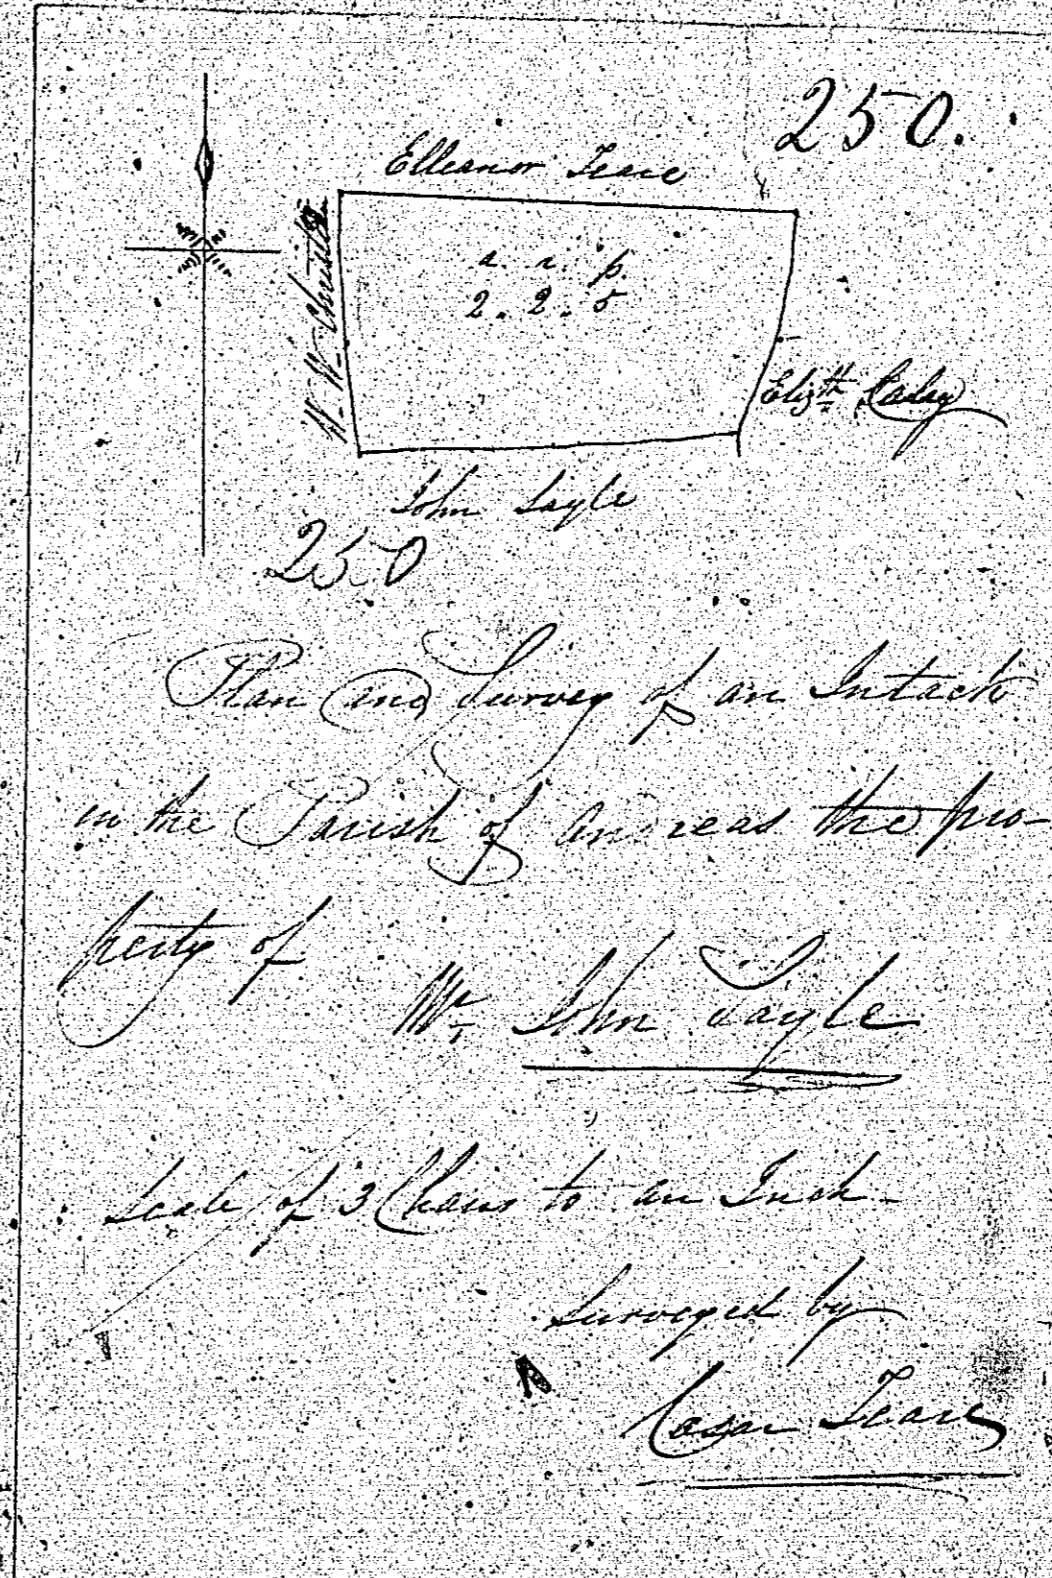 250.
Elleanor Teare
W. W. Christian
a. r. p.
2. 2. 5
Elizth
John Sayle
250
Plan and Survey of an Intack
in the Parish of Andreas the pro-
perty of
Mr John Sayle
Scale of 3 Chains to an Inch -
Surveyed by
Cæsar Teare